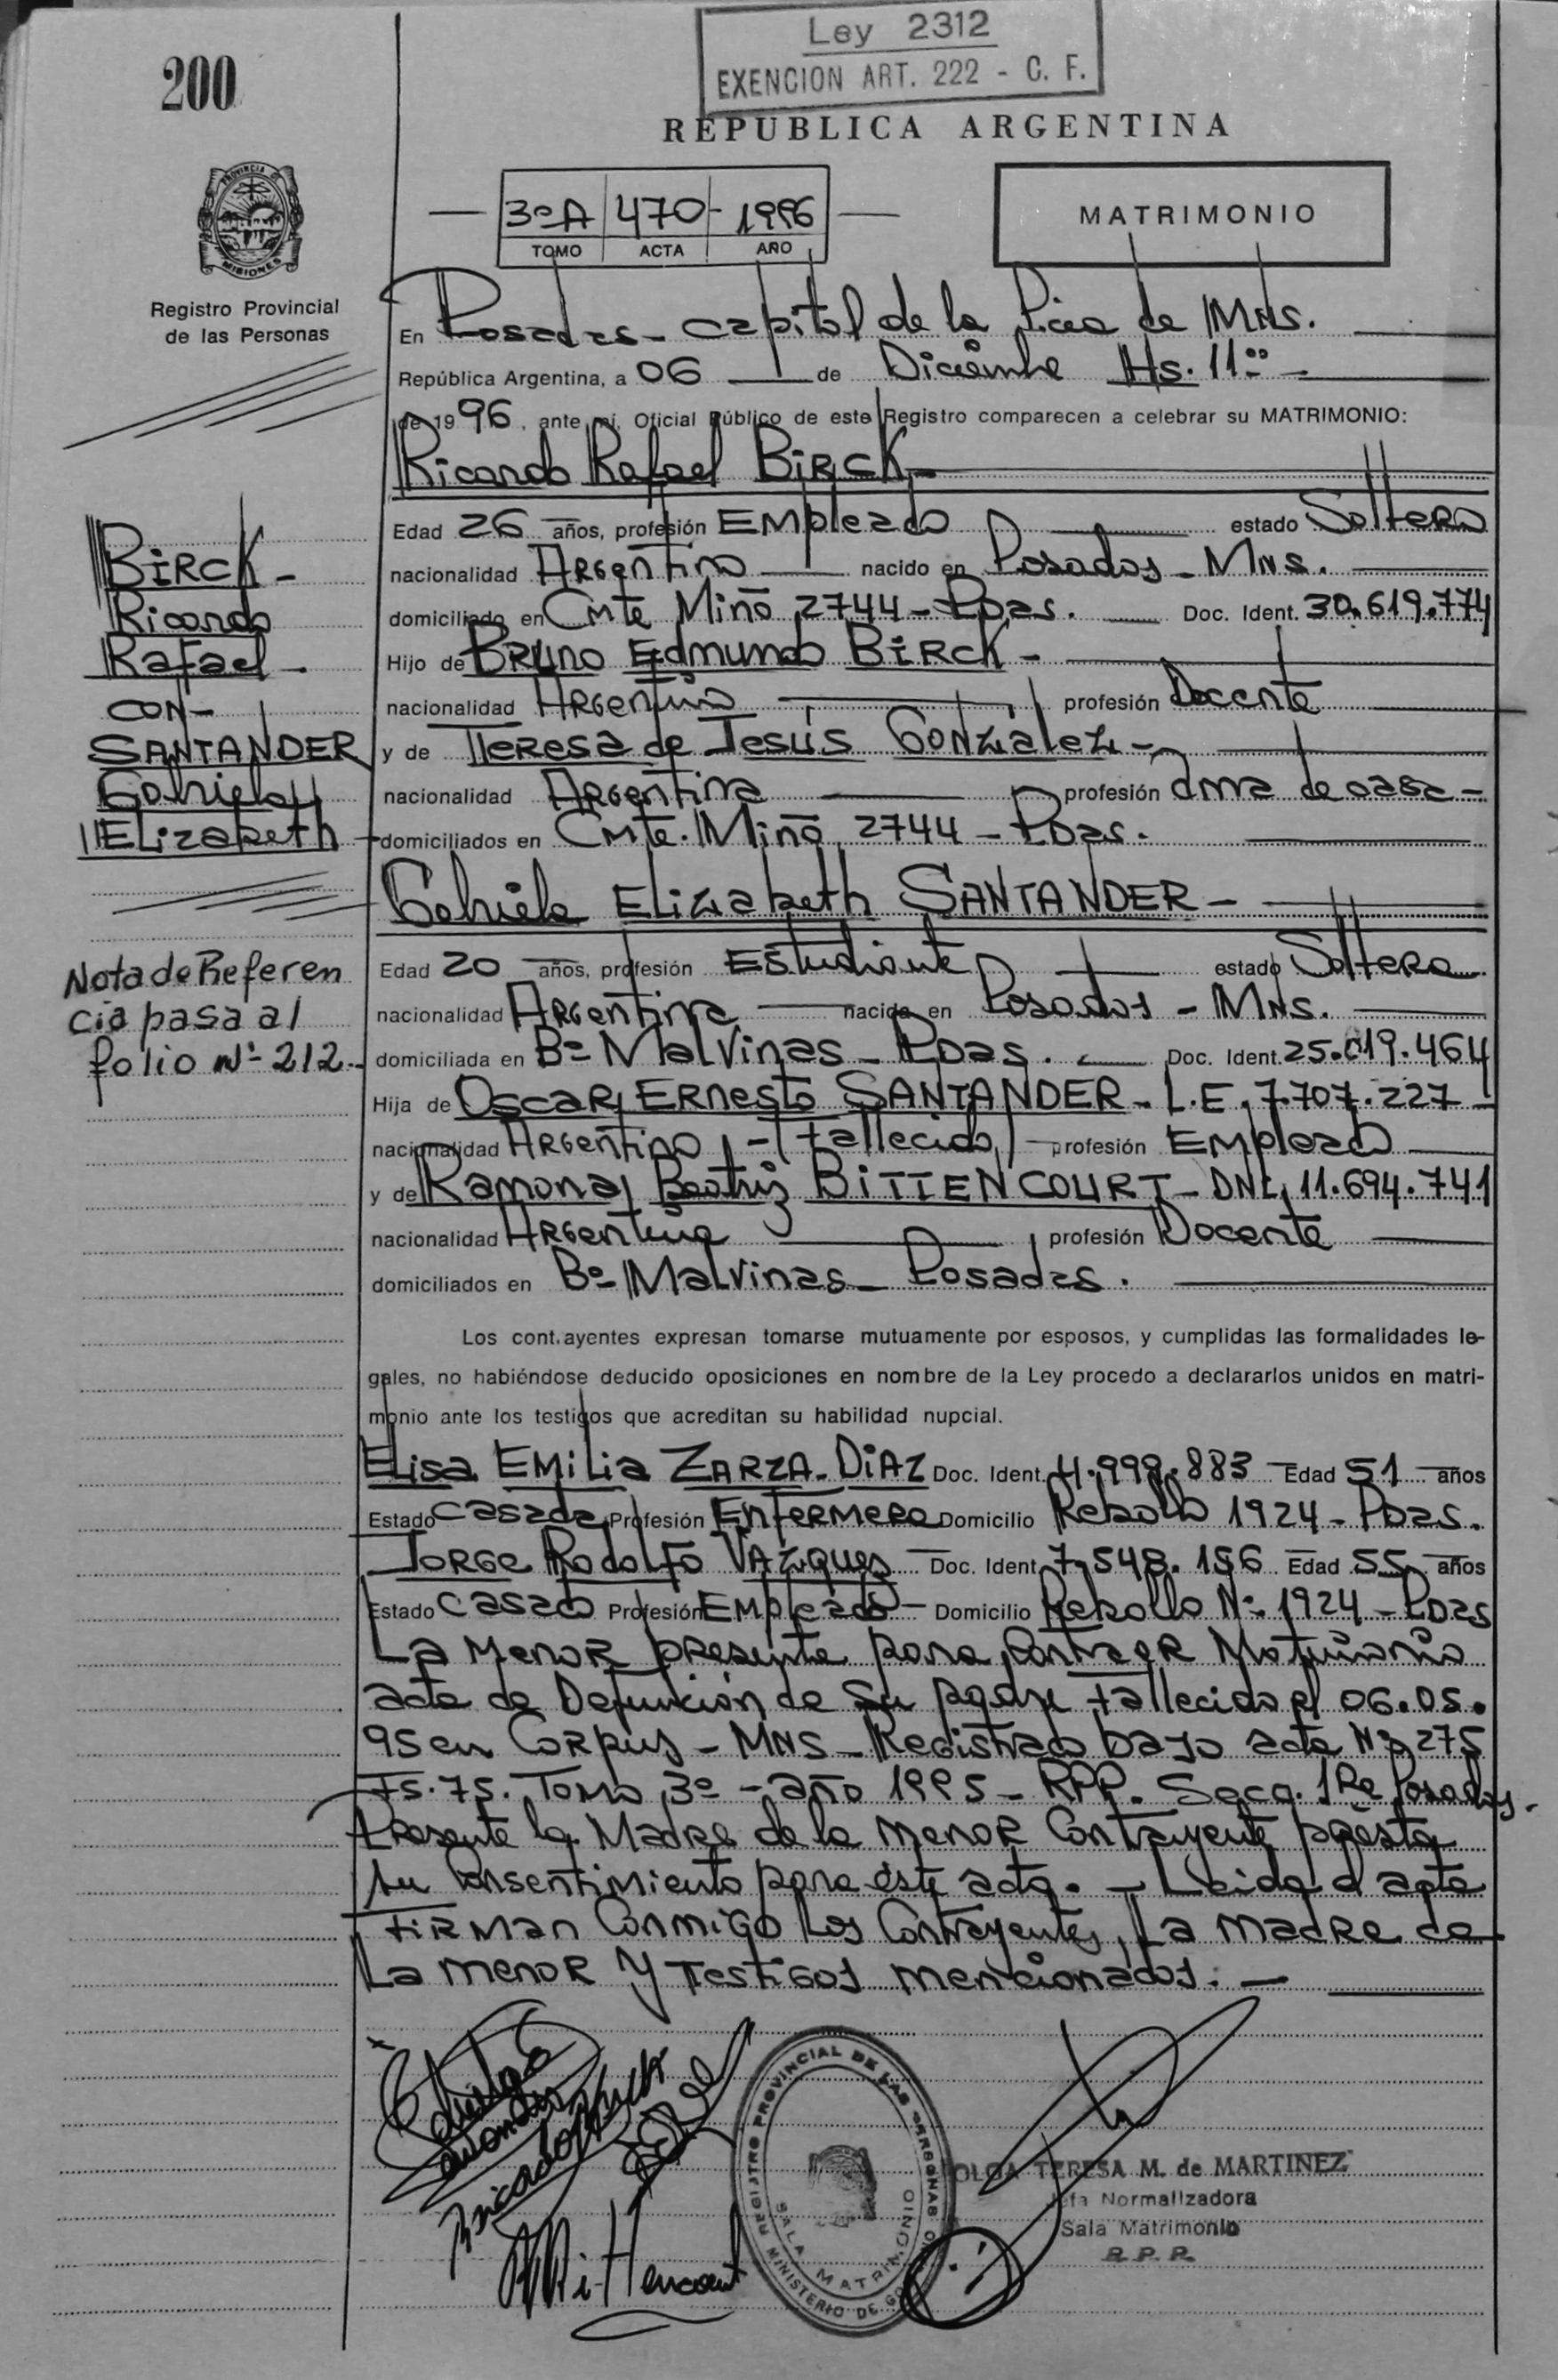 Ley 2312
EXENCION ART. 222 - C. F.
200
REPUBLICA ARGENTINA
PROVINCIA DE MISIONES
3º A 470 - 1996
TOMO ACTA AÑO
MATRIMONIO
Registro Provincial
de las Personas
En Posadas - capital de la Pcia de MNS.
República Argentina, a 06 de Diciembre Hs. 11:00 -
de 1996, ante mí, Oficial Público de este Registro comparecen a celebrar su MATRIMONIO:
Ricardo Rafael BIRCK -
Edad 26 años, profesión EMpleado estado Soltero
nacionalidad Argentino nacido en Posadas - MNS.
domiciliado en Cmte Miño 2744 - Pdas. Doc. Ident. 30.619.774
Hijo de BRUNO Edmundo BIRCK -
nacionalidad Argentino profesión Docente
y de Teresa de Jesús Gonzalez -
nacionalidad Argentina profesión ama de casa -
domiciliados en Cmte. Miño 2744 - Pdas.
BIRCK -
Ricardo
Rafael -
CON -
SANTANDER
Gabriela
Elizabeth
Gabriela Elizabeth SANTANDER -
Edad 20 años, profesión Estudiante estado Soltera
nacionalidad Argentina nacida en Posadas - MNS.
domiciliada en Bº Malvinas - Pdas. Doc. Ident. 25.019.464
Hija de Oscar Ernesto SANTANDER - L.E. 7.707.227
nacionalidad Argentino - (fallecido) profesión EMpleado
y de Ramona Beatriz BITTENCOURT - DNI. 11.694.741
nacionalidad Argentina profesión Docente
domiciliados en Bº Malvinas - Posadas.
Nota de Referen
cia pasa al
folio Nº 212.-
Los contrayentes expresan tomarse mutuamente por esposos, y cumplidas las formalidades le-
gales, no habiéndose deducido oposiciones en nombre de la Ley procedo a declararlos unidos en matri-
monio ante los testigos que acreditan su habilidad nupcial.
Elisa EMilia ZARZA - DIAZ Doc. Ident. 4.999.883 Edad 51 años
Estado casada Profesión Enfermera Domicilio Rebollo 1924 - Pdas.
Jorge Rodolfo VAZquez Doc. Ident. 7.548.156 Edad 55 años
Estado casado Profesión EMpleado - Domicilio Rebollo Nº 1924 - Pdas
La Menor presenta para contraer Matrimonio
acta de Defunción de su padre fallecido el 06.05.
95 en Corpus - MNS - Registrado bajo acta Nº 275
Fs. 75. Tomo 3º - año 1995 - RPP. Secc. 1ra Posadas -
Presente la Madre de la menor Contrayente presta
su Consentimiento para este acto. - Leida el acta
Firman Conmigo Los Contrayentes, La Madre de
La menor y Testigos mencionados. -
REGISTRO PROVINCIAL DE LAS PERSONAS
SALA MATRIMONIO
MINISTERIO DE GO
OLGA TERESA M. de MARTINEZ
Jefa Normalizadora
Sala Matrimonio
R.P.P.